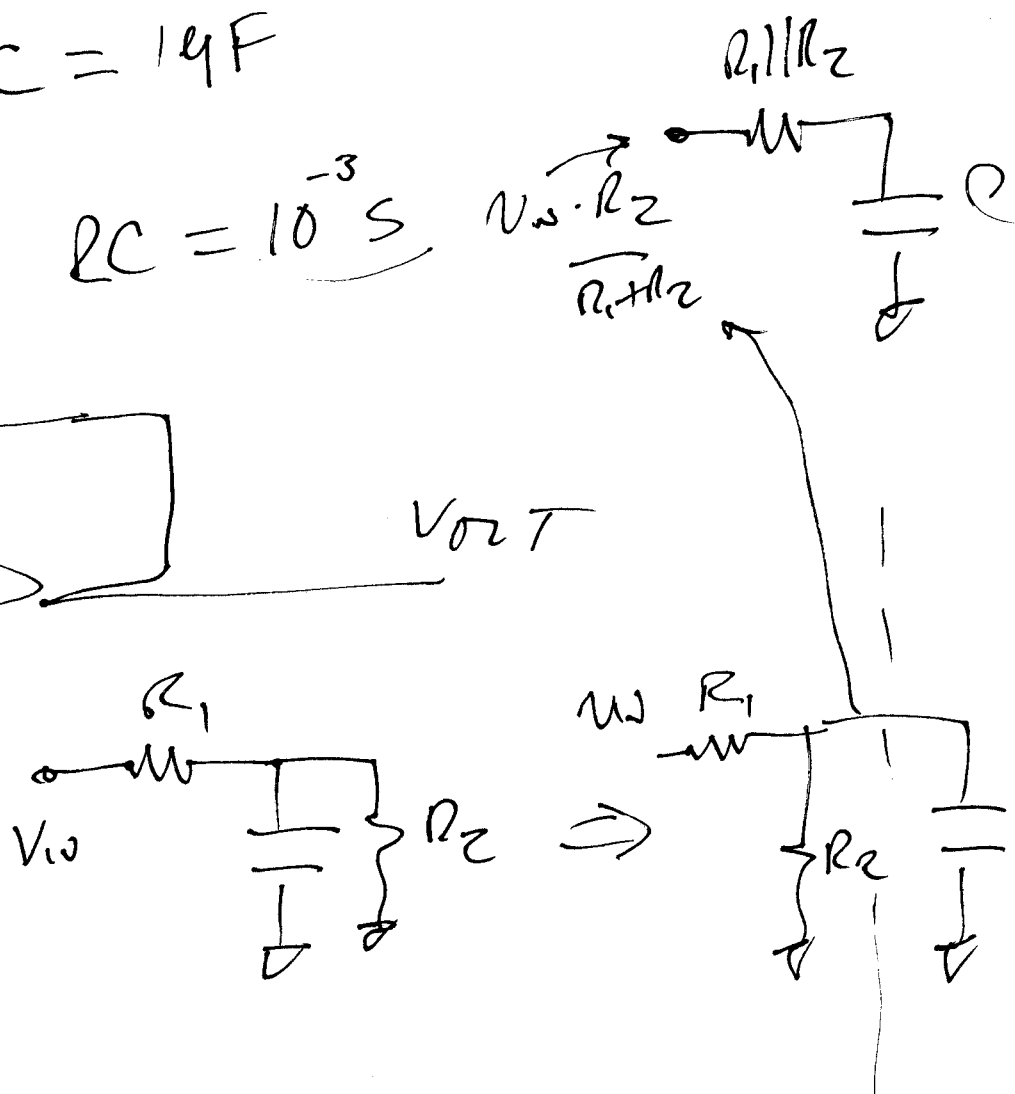 C = 1μF
R₁||R₂
RC = 10⁻³ S
VIN · R₂
R₁+R₂
C
VOUT
R₁
VIN
R₂
⇒
VIN R₁
R₂